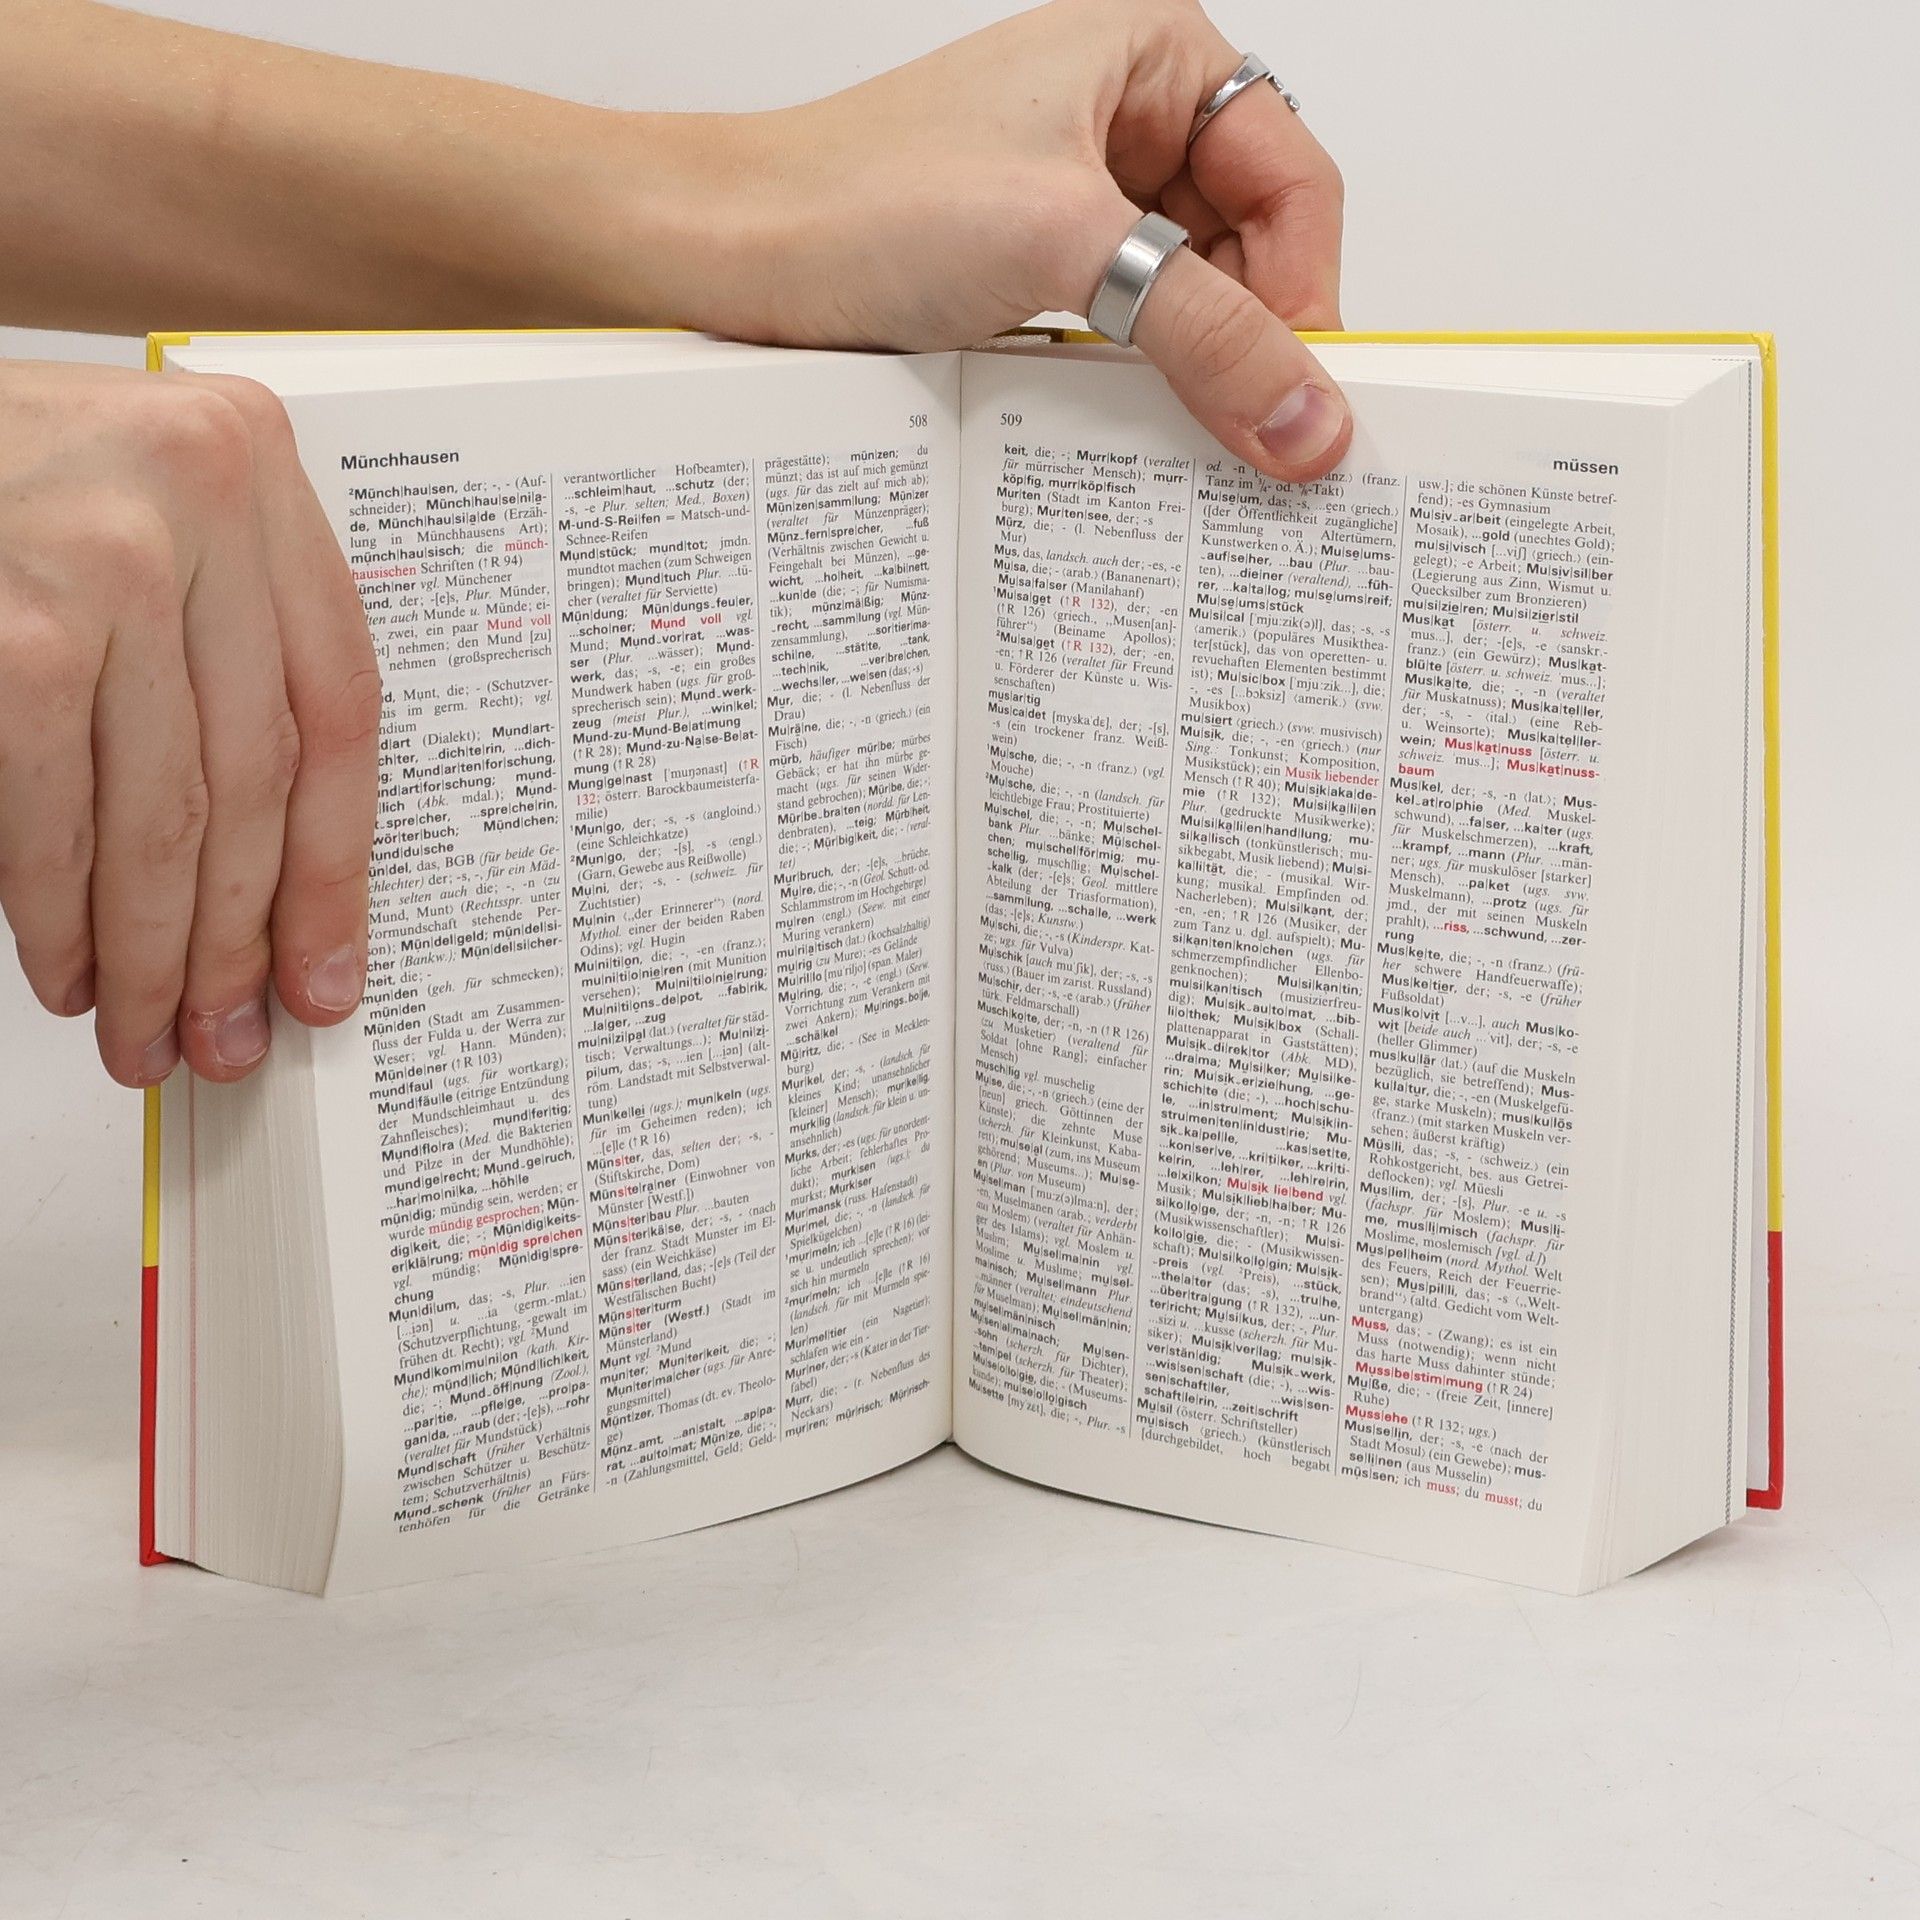 508
Münchhausen
²Münch|hau|sen, der; -, - (Auf-
schneider); Münch|hau|se|ni|a-
de, Münch|hau|si|a|de (Erzäh-
lung in Münchhausens Art);
münch|hau|sisch; die münch-
hausischen Schriften (↑R 94)
vgl. Münchener
der; -[e]s, Plur. Münder,
auch Munde u. Münde; ei-
zwei, ein paar Mund voll
nehmen; den Mund [zu]
nehmen (großsprecherisch
Munt, die; - (Schutzver-
im germ. Recht); vgl.
(Dialekt); Mund|art-
...dich|te|rin, ...dich-
Mund|ar|ten|for|schung,
mund-
(Abk. mdal.); Mund-
...spre|che|rin,
Münd|chen;
das, BGB (für beide Ge-
der; -s, -, für ein Mäd-
hen selten auch die; -, -n (zu
Mund, Munt) (Rechtsspr. unter
Vormundschaft stehende Per-
son); Mün|del|geld; mün|del|si-
cher (Bankw.); Mün|del|si|cher-
heit, die; -
mun|den (geh. für schmecken);
mün|den
Mün|den (Stadt am Zusammen-
fluss der Fulda u. der Werra zur
Weser; vgl. Hann. Münden);
Mün|de|ner (↑R 103)
mund|faul (ugs. für wortkarg);
Mund|fäu|le (eitrige Entzündung
der Mundschleimhaut u. des
Zahnfleisches); mund|fer|tig;
Mund|flo|ra (Med. die Bakterien
und Pilze in der Mundhöhle);
mund|ge|recht; Mund_ge|ruch,
...har|mo|ni|ka, ...höh|le
mün|dig; mündig sein, werden; er
wurde mündig gesprochen; Mün-
dig|keit, die; -; Mün|dig|keits-
er|klä|rung; mün|dig spre|chen
vgl. mündig; Mün|dig|spre-
chung
Mun|di|um, das; -s, Plur. ...ien
[...i̯ən] u. ...ia (germ.-mlat.)
(Schutzverpflichtung, -gewalt im
frühen dt. Recht); vgl. ²Mund
Mund|kom|mu|ni|on (kath. Kir-
che); münd|lich; Münd|lich|keit,
die; -; Mund_öff|nung (Zool.),
...par|tie, ...pfle|ge, ...pro|pa-
gan|da, ...raub (der; -[e]s), ...rohr
(veraltet für Mundstück)
Mund|schaft (früher Verhältnis
zwischen Schützer u. Beschütz-
tem; Schutzverhältnis)
Mund_schenk (früher an Fürs-
tenhöfen für die Getränke
verantwortlicher Hofbeamter),
...schleim|haut, ...schutz (der;
-s, -e Plur. selten; Med., Boxen)
M-und-S-Rei|fen = Matsch-und-
Schnee-Reifen
Mund|stück; mund|tot; jmdn.
mundtot machen (zum Schweigen
bringen); Mund|tuch Plur. ...tü-
cher (veraltet für Serviette)
Mün|dung; Mün|dungs_feu|er,
...scho|ner; Mund voll vgl.
Mund; Mund_vor|rat, ...was-
ser (Plur. ...wässer); Mund-
werk, das; -s, -e; ein großes
Mundwerk haben (ugs. für groß-
sprecherisch sein); Mund_werk-
zeug (meist Plur.), ...win|kel;
Mund-zu-Mund-Be|at|mung
(↑R 28); Mund-zu-Na|se-Be|at-
mung (↑R 28)
Mung|ge|nast ['muŋənast] (↑R
132; österr. Barockbaumeisterfa-
milie)
¹Mun|go, der; -s, -s (angloind.)
(eine Schleichkatze)
²Mun|go, der; -[s], -s (engl.)
(Garn, Gewebe aus Reißwolle)
Mu|ni, der; -s, - (schweiz. für
Zuchtstier)
Mu|nin („der Erinnerer“) (nord.
Mythol. einer der beiden Raben
Odins); vgl. Hugin
Mu|ni|ti|on, die; -, -en (franz.);
mu|ni|ti|o|nie|ren (mit Munition
versehen); Mu|ni|ti|o|nie|rung;
Mu|ni|ti|ons_de|pot, ...fab|rik,
...la|ger, ...zug
mu|ni|zi|pal (lat.) (veraltet für städ-
tisch; Verwaltungs...); Mu|ni|zi-
pi|um, das; -s, ...ien [...i̯ən] (alt-
röm. Landstadt mit Selbstverwal-
tung)
Mun|ke|lei (ugs.); mun|keln (ugs.
für im Geheimen reden); ich
...[e]le (↑R 16)
Müns|ter, das, selten der; -s, -
(Stiftskirche, Dom)
Müns|te|ra|ner (Einwohner von
Münster [Westf.])
Müns|ter|bau Plur. ...bauten
Müns|ter|kä|se, der; -s, - (nach
der franz. Stadt Munster im El-
sass) (ein Weichkäse)
Müns|ter|land, das; -[e]s (Teil der
Westfälischen Bucht)
Müns|ter|turm
Müns|ter (Westf.) (Stadt im
Münsterland)
Munt vgl. ²Mund
mun|ter; Mun|ter|keit, die; -;
Mun|ter|ma|cher (ugs. für Anre-
gungsmittel)
Münt|zer, Thomas (dt. ev. Theolo-
ge)
Münz_amt, ...an|stalt, ...ap|pa-
rat, ...au|to|mat; Mün|ze, die; -,
-n (Zahlungsmittel, Geld; Geld-
prägestätte); mün|zen; du
münzt; das ist auf mich gemünzt
(ugs. für das zielt auf mich ab);
Mün|zen|samm|lung; Mün|zer
(veraltet für Münzenpräger);
Münz_fern|spre|cher, ...fuß
(Verhältnis zwischen Gewicht u.
Feingehalt bei Münzen), ...ge-
wicht, ...ho|heit, ...ka|bi|nett,
...kun|de (die; -; für Numisma-
tik); münz|mä|ßig; Münz-
_recht, ...samm|lung (vgl. Mün-
zensammlung), ...sor|tier|ma-
schi|ne, ...stät|te, ...tank,
...tech|nik, ...ver|bre|chen,
...wechs|ler, ...we|sen (das; -s)
Mur, die; - (l. Nebenfluss der
Drau)
Mu|rä|ne, die; -, -n (griech.) (ein
Fisch)
mürb, häufiger mür|be; mürbes
Gebäck; er hat ihn mürbe ge-
macht (ugs. für seinen Wider-
stand gebrochen); Mür|be, die; -;
Mür|be_bra|ten (nordd. für Len-
denbraten), ...teig; Mürb|heit,
die; -; Mür|big|keit, die; - (veral-
tet)
Mur|bruch, der; -[e]s, ...brüche,
Mu|re, die; -, -n (Geol. Schutt- od.
Schlammstrom im Hochgebirge)
mu|ren (engl.) (Seew. mit einer
Muring verankern)
mu|ri|a|tisch (lat.) (kochsalzhaltig)
mu|rig (zu Mure); -es Gelände
Mu|ril|lo [mu'riljo] (span. Maler)
Mu|ring, die; -, -e (engl.) (Seew.
Vorrichtung zum Verankern mit
zwei Ankern); Mu|rings_bo|je,
...schä|kel
Mü|ritz, die; - (See in Mecklen-
burg)
Mur|kel, der; -s, - (landsch. für
kleines Kind; unansehnlicher
[kleiner] Mensch); mur|ke|lig,
murk|lig (landsch. für klein u. un-
ansehnlich)
Murks, der; -es (ugs. für unordent-
liche Arbeit; fehlerhaftes Pro-
dukt); murk|sen (ugs.); du
murkst; Murk|ser
Mur|mansk (russ. Hafenstadt)
Mur|mel, die; -, -n (landsch. für
Spielkügelchen)
¹mur|meln; ich ...[e]le (↑R 16) (lei-
se u. undeutlich sprechen); vor
sich hin murmeln
²mur|meln; ich ...[e]le (↑R 16)
(landsch. für mit Murmeln spie-
len)
Mur|mel|tier (ein Nagetier);
schlafen wie ein -
Mur|ner, der; -s (Kater in der Tier-
fabel)
Murr, die; - (r. Nebenfluss des
Neckars)
mur|ren; mür|risch; Mür|risch-
509
müssen
keit, die; -; Murr|kopf (veraltet
für mürrischer Mensch); murr-
köp|fig, murr|köp|fisch
Mur|ten (Stadt im Kanton Frei-
burg); Mur|ten|see, der; -s
Mürz, die; - (l. Nebenfluss der
Mur)
Mus, das, landsch. auch der; -es, -e
Mu|sa, die; - (arab.) (Bananenart);
Mu|sa|fa|ser (Manilahanf)
¹Mu|sa|get (↑R 132), der; -en
(↑R 126) (griech., „Musen[an]-
führer“) (Beiname Apollos);
²Mu|sa|get (↑R 132), der; -en,
-en; ↑R 126 (veraltet für Freund
u. Förderer der Künste u. Wis-
senschaften)
mus|ar|tig
Mus|ca|det [myska'dɛ], der; -[s],
-s (ein trockener franz. Weiß-
wein)
¹Mu|sche, die; -, -n (franz.) (vgl.
Mouche)
²Mu|sche, die; -, -n (landsch. für
leichtlebige Frau; Prostituierte)
Mu|schel, die; -, -n; Mu|schel-
bank Plur. ...bänke; Mü|schel-
chen; mu|schel|för|mig; mu-
sche|lig, musch|lig; Mu|schel-
_kalk (der; -[e]s; Geol. mittlere
Abteilung der Triasformation),
...samm|lung, ...scha|le, ...werk
(das; -[e]s; Kunstw.)
Mu|schi, die; -, -s (Kinderspr. Kat-
ze; ugs. für Vulva)
Mu|schik [auch mu'ʃik], der; -s, -s
(russ.) (Bauer im zarist. Russland)
Mu|schir, der; -s, -e (arab.) (früher
türk. Feldmarschall)
Musch|ko|te, der; -n, -n (↑R 126)
(zu Musketier) (veraltend für
Soldat [ohne Rang]; einfacher
Mensch)
musch|lig vgl. muschelig
Mu|se, die; -, -n (griech.) (eine der
[neun] griech. Göttinnen der
Künste); die zehnte Muse
(scherzh. für Kleinkunst, Kaba-
rett); mu|se|al (zum, ins Museum
gehörend; Museums...); Mu|se-
en (Plur. von Museum)
Mu|sel|man ['mu:z(ə)lma:n], der;
-en, Muselmanen (arab.; verderbt
aus Moslem) (veraltet für Anhän-
ger des Islams); vgl. Moslem u.
Muslim; Mu|sel|ma|nin vgl.
Moslime u. Muslime; mu|sel-
ma|nisch; Mu|sel|mann Plur.
...männer (veraltet; eindeutschend
für Muselman); Mu|sel|män|nin;
mu|sel|män|nisch
Mu|sen|al|ma|nach; Mu|sen-
_sohn (scherzh. für Dichter),
...tem|pel (scherzh. für Theater);
Mu|se|o|lo|gie, die; - (Museums-
kunde); mu|se|o|lo|gisch
Mu|sette [my'zɛt], die; -, Plur. -s
od. -n (franz.) (franz.
Tanz im ³/₄- od. ⁶/₈-Takt)
Mu|se|um, das; -s, ...een (griech.)
([der Öffentlichkeit zugängliche]
Sammlung von Altertümern,
Kunstwerken o. Ä.); Mu|se|ums-
_auf|se|her, ...bau (Plur. ...bau-
ten), ...die|ner (veraltend), ...füh-
rer, ...ka|ta|log; mu|se|ums|reif;
Mu|se|ums|stück
Mu|si|cal ['mju:zik(ə)l], das; -s, -s
(amerik.) (populäres Musikthea-
ter[stück], das von operetten- u.
revuehaften Elementen bestimmt
ist); Mu|sic|box ['mju:zik...], die;
-, -es [...bɔksiz] (amerik.) (svw.
Musikbox)
mu|siert (griech.) (svw. musivisch)
Mu|sik, die; -, -en (griech.) (nur
Sing.: Tonkunst; Komposition,
Musikstück); ein Musik liebender
Mensch (↑R 40); Mu|sik|aka|de-
mie (↑R 132); Mu|si|ka|li|en
Plur. (gedruckte Musikwerke);
Mu|si|ka|li|en|hand|lung; mu-
si|ka|lisch (tonkünstlerisch; mu-
sikbegabt, Musik liebend); Mu|si-
ka|li|tät, die; - (musikal. Wir-
kung; musikal. Empfinden od.
Nacherleben); Mu|si|kant, der;
-en, -en; ↑R 126 (Musiker, der
zum Tanz u. dgl. aufspielt); Mu-
si|kan|ten|kno|chen (ugs. für
schmerzempfindlicher Ellenbo-
genknochen); Mu|si|kan|tin;
mu|si|kan|tisch (musizierfreu-
dig); Mu|sik_au|to|mat, ...bib-
li|o|thek; Mu|sik|box (Schall-
plattenapparat in Gaststätten);
Mu|sik_di|rek|tor (Abk. MD),
...dra|ma; Mu|si|ker; Mu|si|ke-
rin; Mu|sik_er|zie|hung, ...ge-
schich|te (die; -), ...hoch|schu-
le, ...in|stru|ment; Mu|sik|in-
stru|men|ten|in|dust|rie; Mu-
sik_ka|pel|le, ...kas|set|te,
...kon|ser|ve, ...kri|ti|ker, ...kri|ti-
ke|rin, ...leh|rer, ...leh|re|rin,
...le|xi|kon; Mu|sik lie|bend vgl.
Musik; Mu|sik|lieb|ha|ber; Mu-
si|ko|lo|ge, der; -n, -n; ↑R 126
(Musikwissenschaftler); Mu|si-
ko|lo|gie, die; - (Musikwissen-
schaft); Mu|si|ko|lo|gin; Mu|sik-
_preis (vgl. ²Preis), ...stück,
...the|a|ter (das; -s), ...tru|he,
...über|tra|gung (↑R 132), ...un-
ter|richt; Mu|si|kus, der; -, Plur.
...sizi u. ...kusse (scherzh. für Mu-
siker); Mu|sik|ver|lag; mu|sik-
ver|stän|dig; Mu|sik_werk,
...wis|sen|schaft (die; -), ...wis-
sen|schaft|ler, ...wis|sen-
schaft|le|rin, ...zeit|schrift
Mu|sil (österr. Schriftsteller)
mu|sisch (griech.) (künstlerisch
[durchgebildet, hoch begabt
usw.]; die schönen Künste betref-
fend); -es Gymnasium
Mu|siv_ar|beit (eingelegte Arbeit,
Mosaik), ...gold (unechtes Gold);
mu|si|visch [...viʃ] (griech.) (ein-
gelegt); -e Arbeit; Mu|siv|sil|ber
(Legierung aus Zinn, Wismut u.
Quecksilber zum Bronzieren)
mu|si|zie|ren; Mu|si|zier|stil
Mus|kat [österr. u. schweiz.
'mus...], der; -[e]s, -e (sanskr.-
franz.) (ein Gewürz); Mus|kat-
blü|te [österr. u. schweiz. 'mus...];
Mus|ka|te, die; -, -n (veraltet
für Muskatnuss); Mus|ka|tel|ler,
der; -s, - (ital.) (eine Reb-
u. Weinsorte); Mus|ka|tel|ler-
wein; Mus|kat|nuss [österr. u.
schweiz. 'mus...]; Mus|kat|nuss-
baum
Mus|kel, der; -s, -n (lat.); Mus-
kel_at|ro|phie (Med. Muskel-
schwund), ...fa|ser, ...ka|ter (ugs.
für Muskelschmerzen), ...kraft,
...krampf, ...mann (Plur. ...män-
ner; ugs. für muskulöser [starker]
Mensch), ...pa|ket (ugs. svw.
Muskelmann), ...protz (ugs. für
jmd., der mit seinen Muskeln
prahlt), ...riss, ...schwund, ...zer-
rung
Mus|ke|te, die; -, -n (franz.) (frü-
her schwere Handfeuerwaffe);
Mus|ke|tier, der; -s, -e (früher
Fußsoldat)
Mus|ko|vit [...v...], auch Mus|ko-
wit [beide auch ...vit], der; -s, -e
(heller Glimmer)
mus|ku|lär (lat.) (auf die Muskeln
bezüglich, sie betreffend); Mus-
ku|la|tur, die; -, -en (Muskelgefü-
ge, starke Muskeln); mus|ku|lös
(franz.) (mit starken Muskeln ver-
sehen; äußerst kräftig)
Müs|li, das; -s, - (schweiz.) (ein
Rohkostgericht, bes. aus Getrei-
deflocken); vgl. Müesli
Mus|lim, der; -[s], Plur. -e u. -s
(fachspr. für Moslem); Mus|li-
me, mus|li|misch (fachspr. für
Moslime, moslemisch [vgl. d.])
Mus|pel|heim (nord. Mythol. Welt
des Feuers, Reich der Feuerrie-
sen); Mus|pil|li, das; -s („Welt-
brand“) (altd. Gedicht vom Welt-
untergang)
Muss, das; - (Zwang); es ist ein
Muss (notwendig); wenn nicht
das harte Muss dahinter stünde;
Muss|be|stim|mung (↑R 24)
Mu|ße, die; - (freie Zeit, [innere]
Ruhe)
Muss|ehe (↑R 132; ugs.)
Mus|se|lin, der; -s, -e (nach der
Stadt Mosul) (ein Gewebe); mus-
se|li|nen (aus Musselin)
müs|sen; ich muss; du musst; du